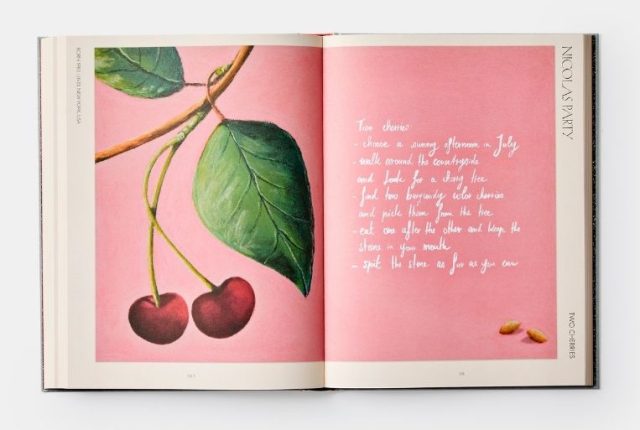 NEW YORK, USA
NICOLAS PARTY
Two cherries:
- choose a sunny afternoon in July
- walk around the countryside
and look for a cherry tree
- find two burgundy color cherries
and pick them from the tree
- eat one after the other and keep the
stones in your mouth
- spit the stone as far as you can
TWO CHERRIES